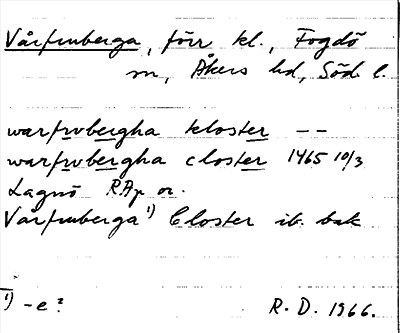 Vårfruberga, förr kl., Fogdö
sn, Åkers hd, Söd. l.
warfrvbergha kloster --
warfrvbergha closter 1465 10/3
Lagnö RAp or.
Vårfruberga 1) Closter ib. bak
1) -e?
R. D. 1966.